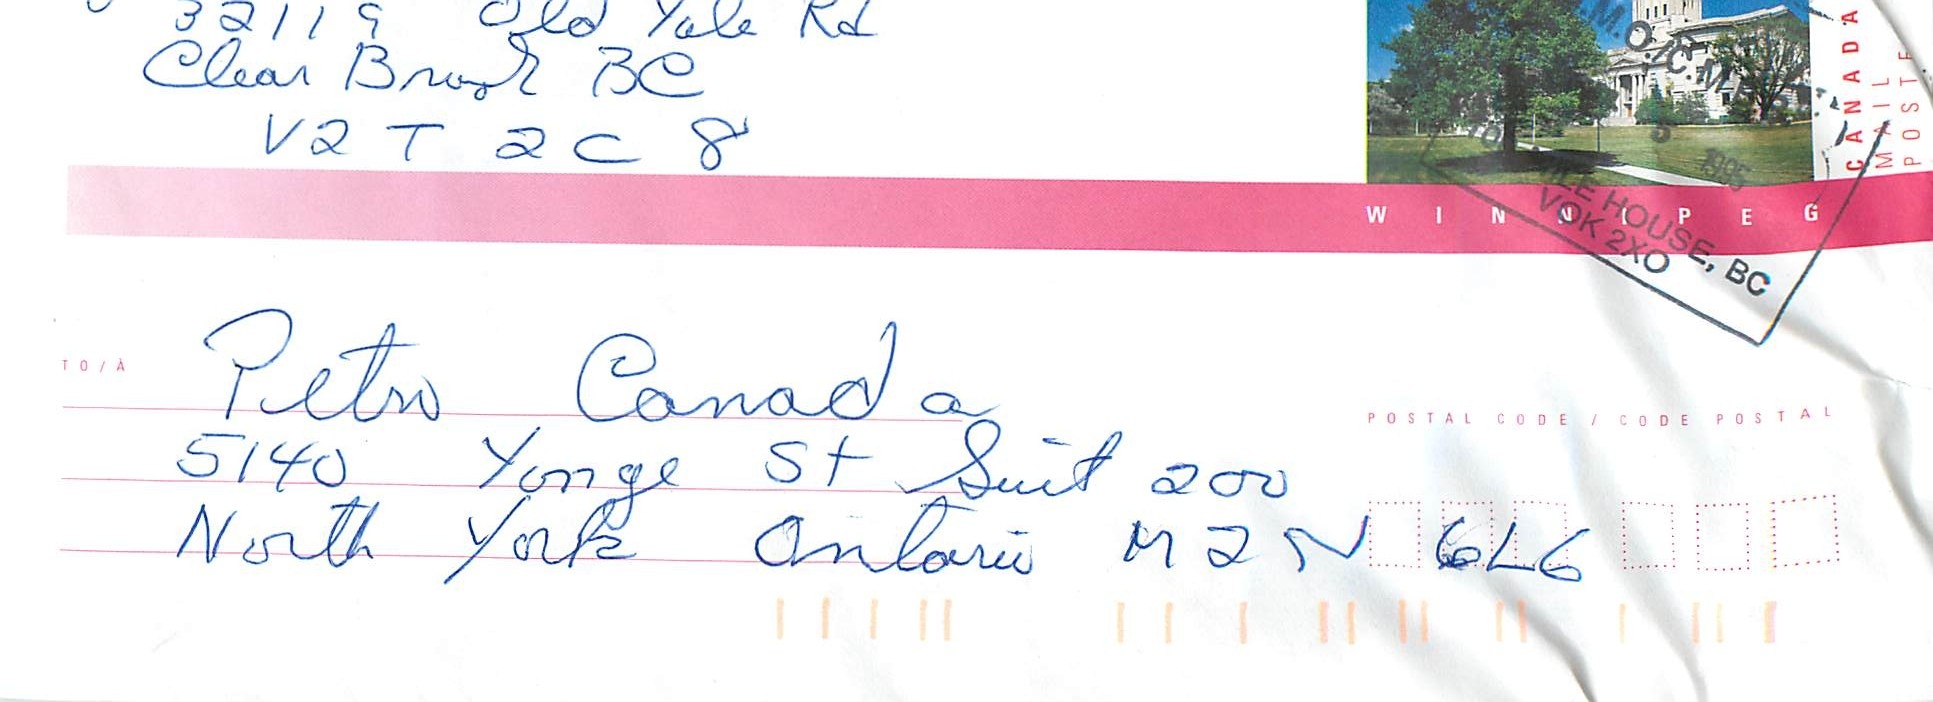 32119 Old Yale Rd
Clear Brook BC
V2T 2C8
CANADA
MAIL
POSTE
M.O./C.M.
1995
HOUSE, BC
V0K 2X0
WINNIPEG
TO/À
Petro Canada
5140 Yonge St Suit 200
North York Ontario M2N 6L6
POSTAL CODE / CODE POSTAL